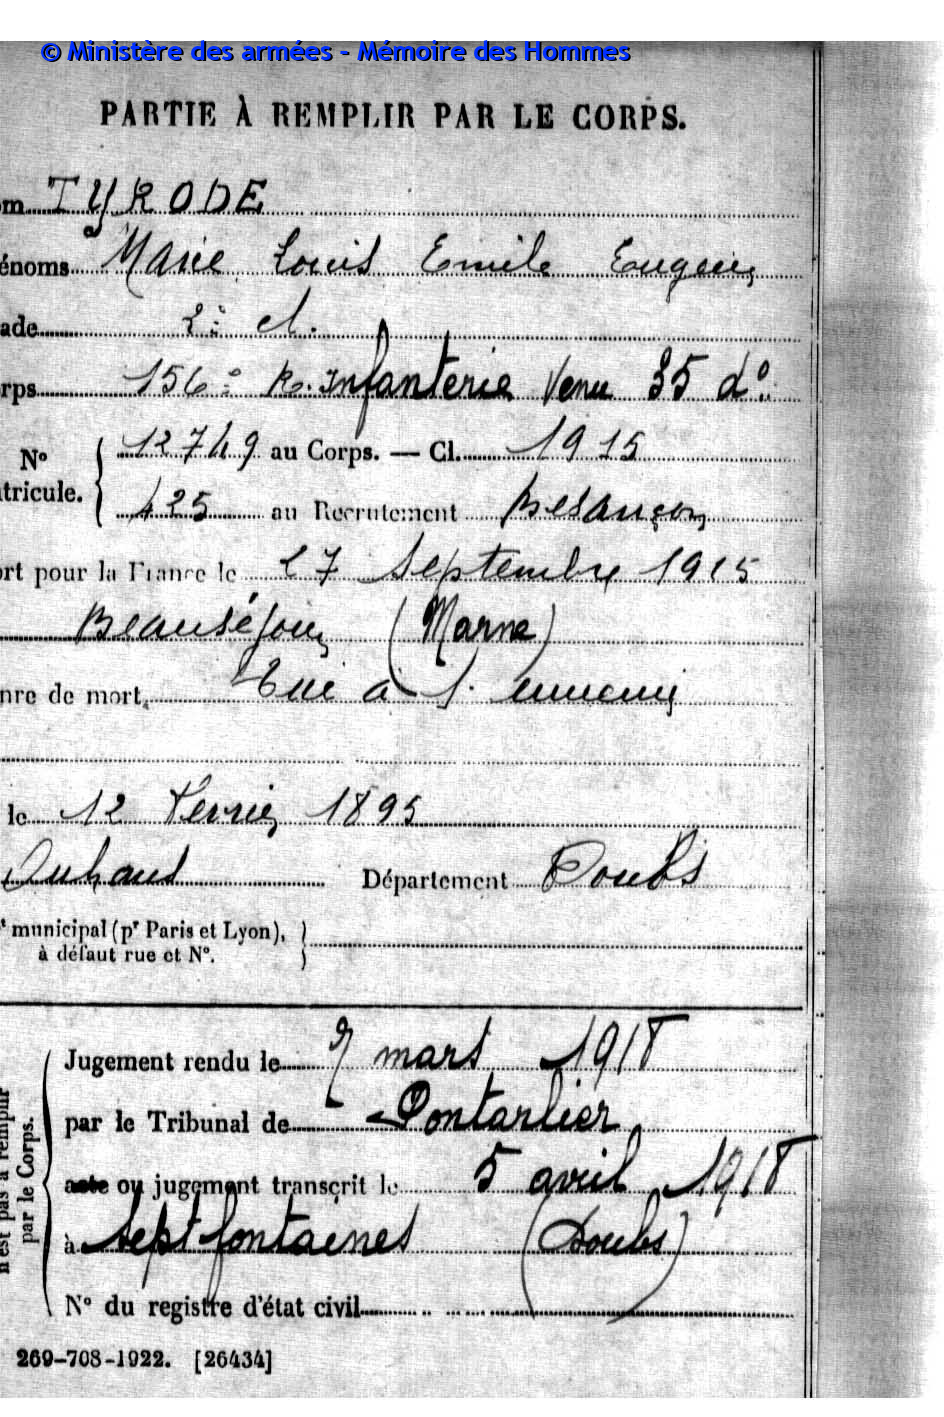 © Ministère des armées - Mémoire des Hommes
PARTIE À REMPLIR PAR LE CORPS.
om TYRODE
énoms Marie Louis Emile Eugène
ade 2e cl.
rps 156e R. Infanterie Venu 35 do
No
tricule.
12749 au Corps. — Cl. 1915
425 au Recrutement Besançon
ort pour la France le 27 Septembre 1915
Beauséjour (Marne)
nre de mort Tué à l'ennemi
le 12 Février 1895
Département Doubs
t municipal (pr Paris et Lyon),
à défaut rue et No.
n'est pas à remplir
par le Corps.
Jugement rendu le mars 1918
par le Tribunal de Pontarlier
acte ou jugement transcrit le 5 avril 1918
à Septfontaines (Doubs)
No du registre d'état civil
269-708-1922. [26434]